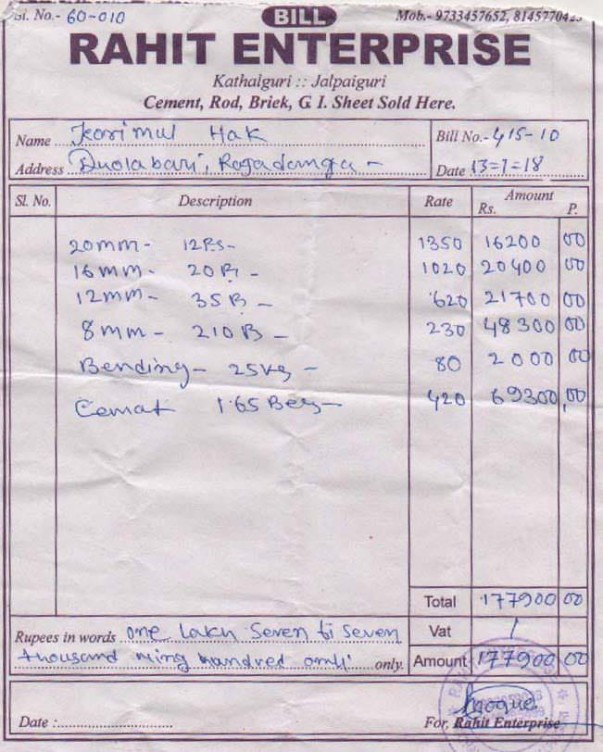 Sl. No.- 60-010
BILL
Mob.- 9733457652, 8145770423
RAHIT ENTERPRISE
Kathalguri :: Jalpaiguri
Cement, Rod, Briek, G I. Sheet Sold Here.
Name Korimul Hak
Bill No.- 415-10
Address Duolabari, Ragadanga -
Date 13-1-18
Sl. No. Description Rate Amount
Rs. P.
20mm- 12Ps- 1350 16200 00
16mm- 20P- 1020 20400 00
12mm- 35P- 620 21700 00
8mm- 210P- 230 48300 00
Bending- 25kg- 80 2000 00
Cemat 165 Beg- 420 69300,00
Total 177900 00
Rupees in words one lakh Seven ti Seven
Vat /
thousand ning handred only. only.
Amount 177900 00
Date :
For, Rahit Enterprise